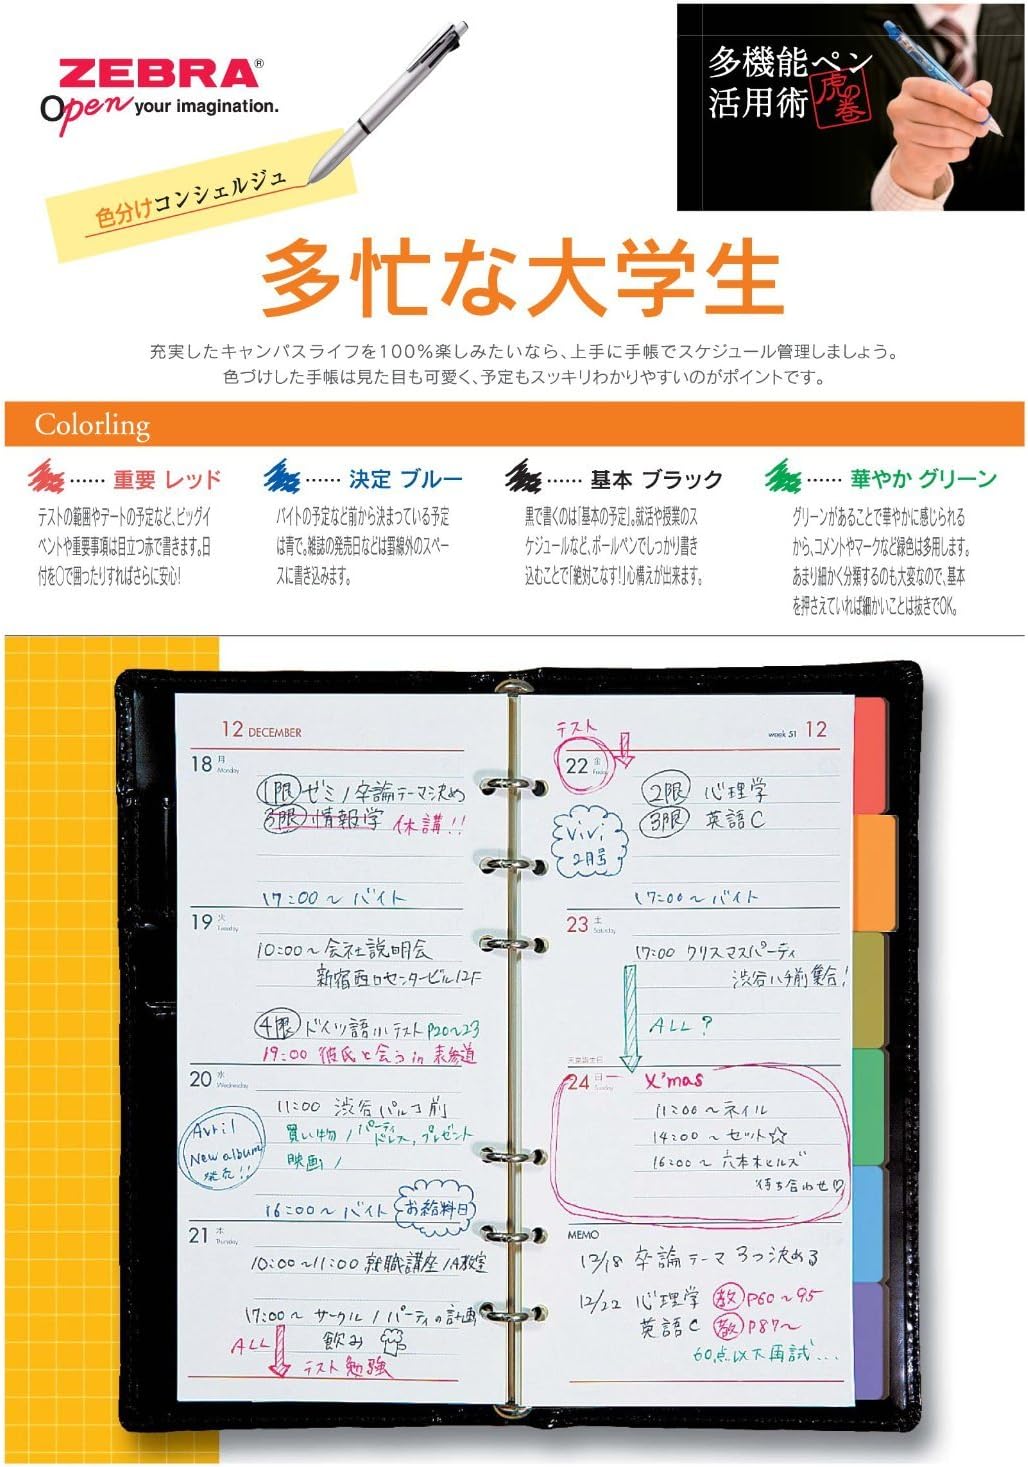 ZEBRA®
Open your imagination.
多機能ペン
活用術
虎の巻
色分けコンシェルジュ
多忙な大学生
充実したキャンパスライフを100%楽しみたいなら、上手に手帳でスケジュール管理しましょう。
色づけした手帳は見た目も可愛く、予定もスッキリわかりやすいのがポイントです。
Colorling
……重要 レッド
テストの範囲やデートの予定など、ビッグイ
ベントや重要事項は目立つ赤で書きます。日
付を○で囲ったりすればさらに安心!
……決定 ブルー
バイトの予定など前から決まっている予定
は青で。雑誌の発売日などは罫線外のスペー
スに書き込みます。
……基本 ブラック
黒で書くのは「基本の予定」。就活や授業のス
ケジュールなど、ボールペンでしっかり書き
込むことで「絶対こなす!」心構えが出来ます。
……華やか グリーン
グリーンがあることで華やかに感じられる
から、コメントやマークなど緑色は多用します。
あまり細かく分類するのも大変なので、基本
を押さえていれば細かいことは抜きでOK。
12 DECEMBER
18 月
Monday
1限 ゼミ/卒論テーマ決め
3限 情報学 休講!!
17:00〜バイト
19 火
Tuesday
10:00〜会社説明会
新宿西口センタービル12F
4限 ドイツ語小テスト P20〜23
19:00 彼氏と会う in 表参道
20 水
Wednesday
11:00 渋谷パルコ前
買い物/パーティドレス,プレゼント
映画/
Avril
New album
発売!!
16:00〜バイト お給料日
21 木
Thursday
10:00〜11:00 就職講座 1A教室
17:00〜サークル/パーティの計画
飲み
ALL
テスト勉強
week 51 12
テスト
22 金
Friday
2限 心理学
3限 英語C
ViVi
2月号
17:00〜バイト
23 土
Saturday
17:00 クリスマスパーティ
渋谷ハチ前集合!
ALL?
天皇誕生日
24 日
Sunday
X'mas
11:00〜ネイル
14:00〜セット☆
16:00〜六本木ヒルズ
待ち合わせ♡
MEMO
12/18 卒論テーマ3つ決める
12/22 心理学 教 P60〜95
英語C 教 P87〜
60点以下再試...